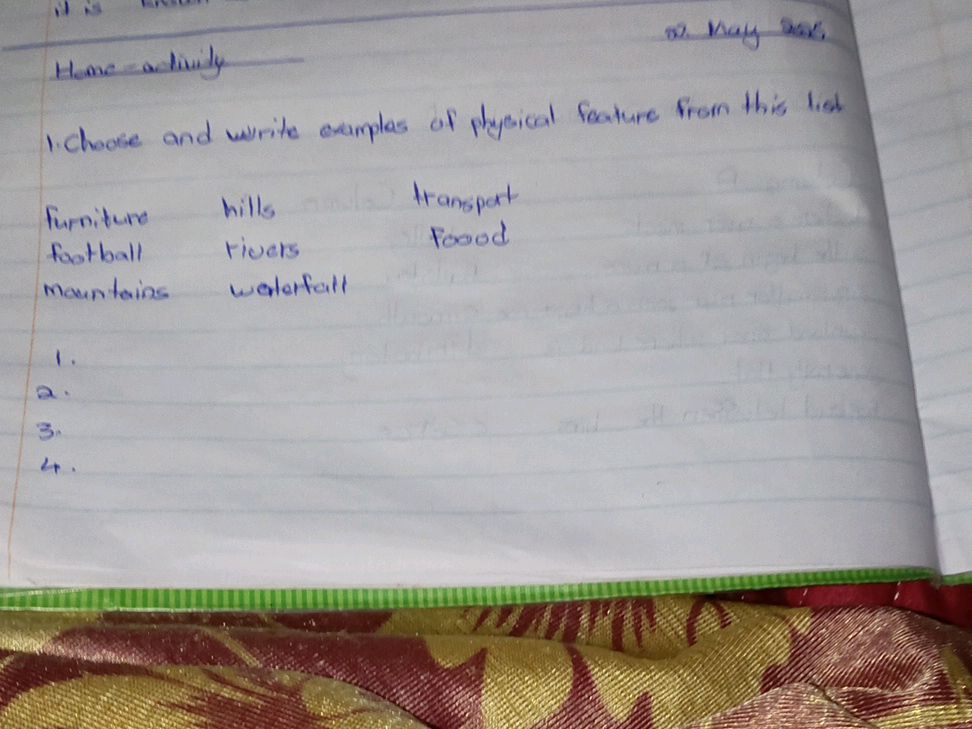 it is
02. May
Home activity
1. Choose and write examples of physical feature from this list
furniture hills transport
football rivers foood
mountains waterfall
1.
2.
3.
4.